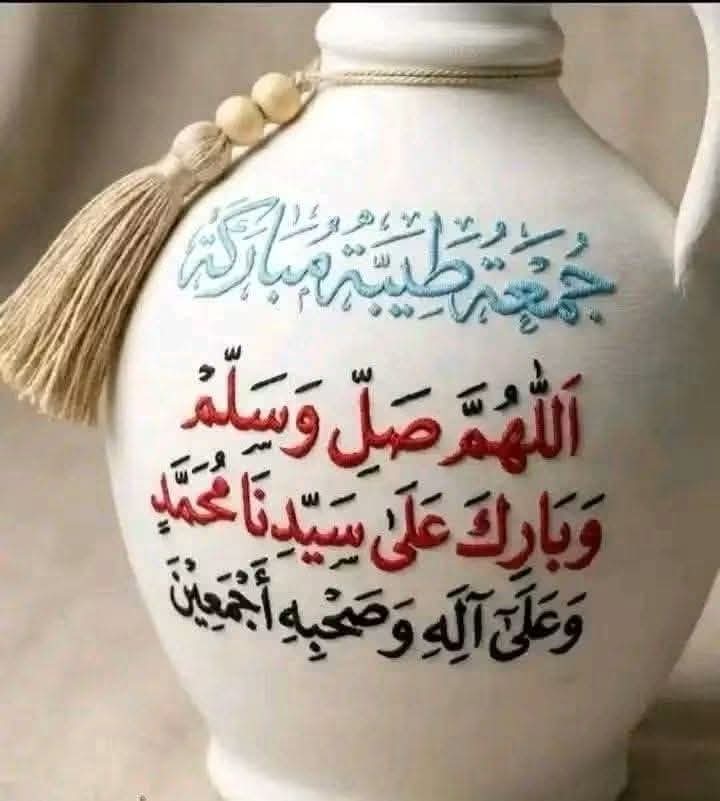 جُمْعَة طَيِّبَة مُبَارَكَة
اَللّٰهُمَّ صَلِّ وَسَلِّمْ
وَبَارِكَ عَلَىٰ سَيِّدِنَا مُحَمَّدٍ
وَعَلَىٰ آلِهِ وَصَحْبِهِ أَجْمَعِيْنَ